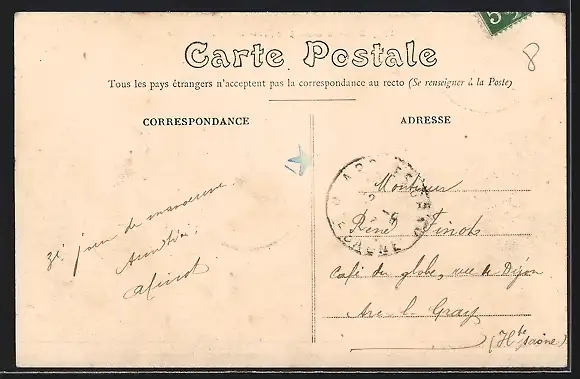 5
8
Carte Postale
Tous les pays étrangers n'acceptent pas la correspondance au recto (Se renseigner à la Poste)
CORRESPONDANCE
ADRESSE
Monsieur
René Finot
Café du globe, rue de Dijon
Arc-l-Gray
(Hte Saône)
jour de manoeuvre.